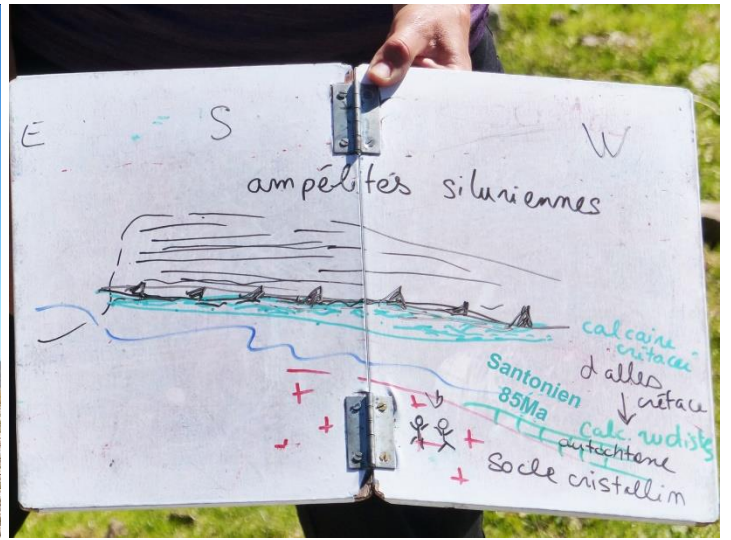 E S W
ampélites siluriennes
calcaire
crétacé
dalles
crétacé
Santonien
85Ma
Calc. rudistes
autochtone
Socle cristallin